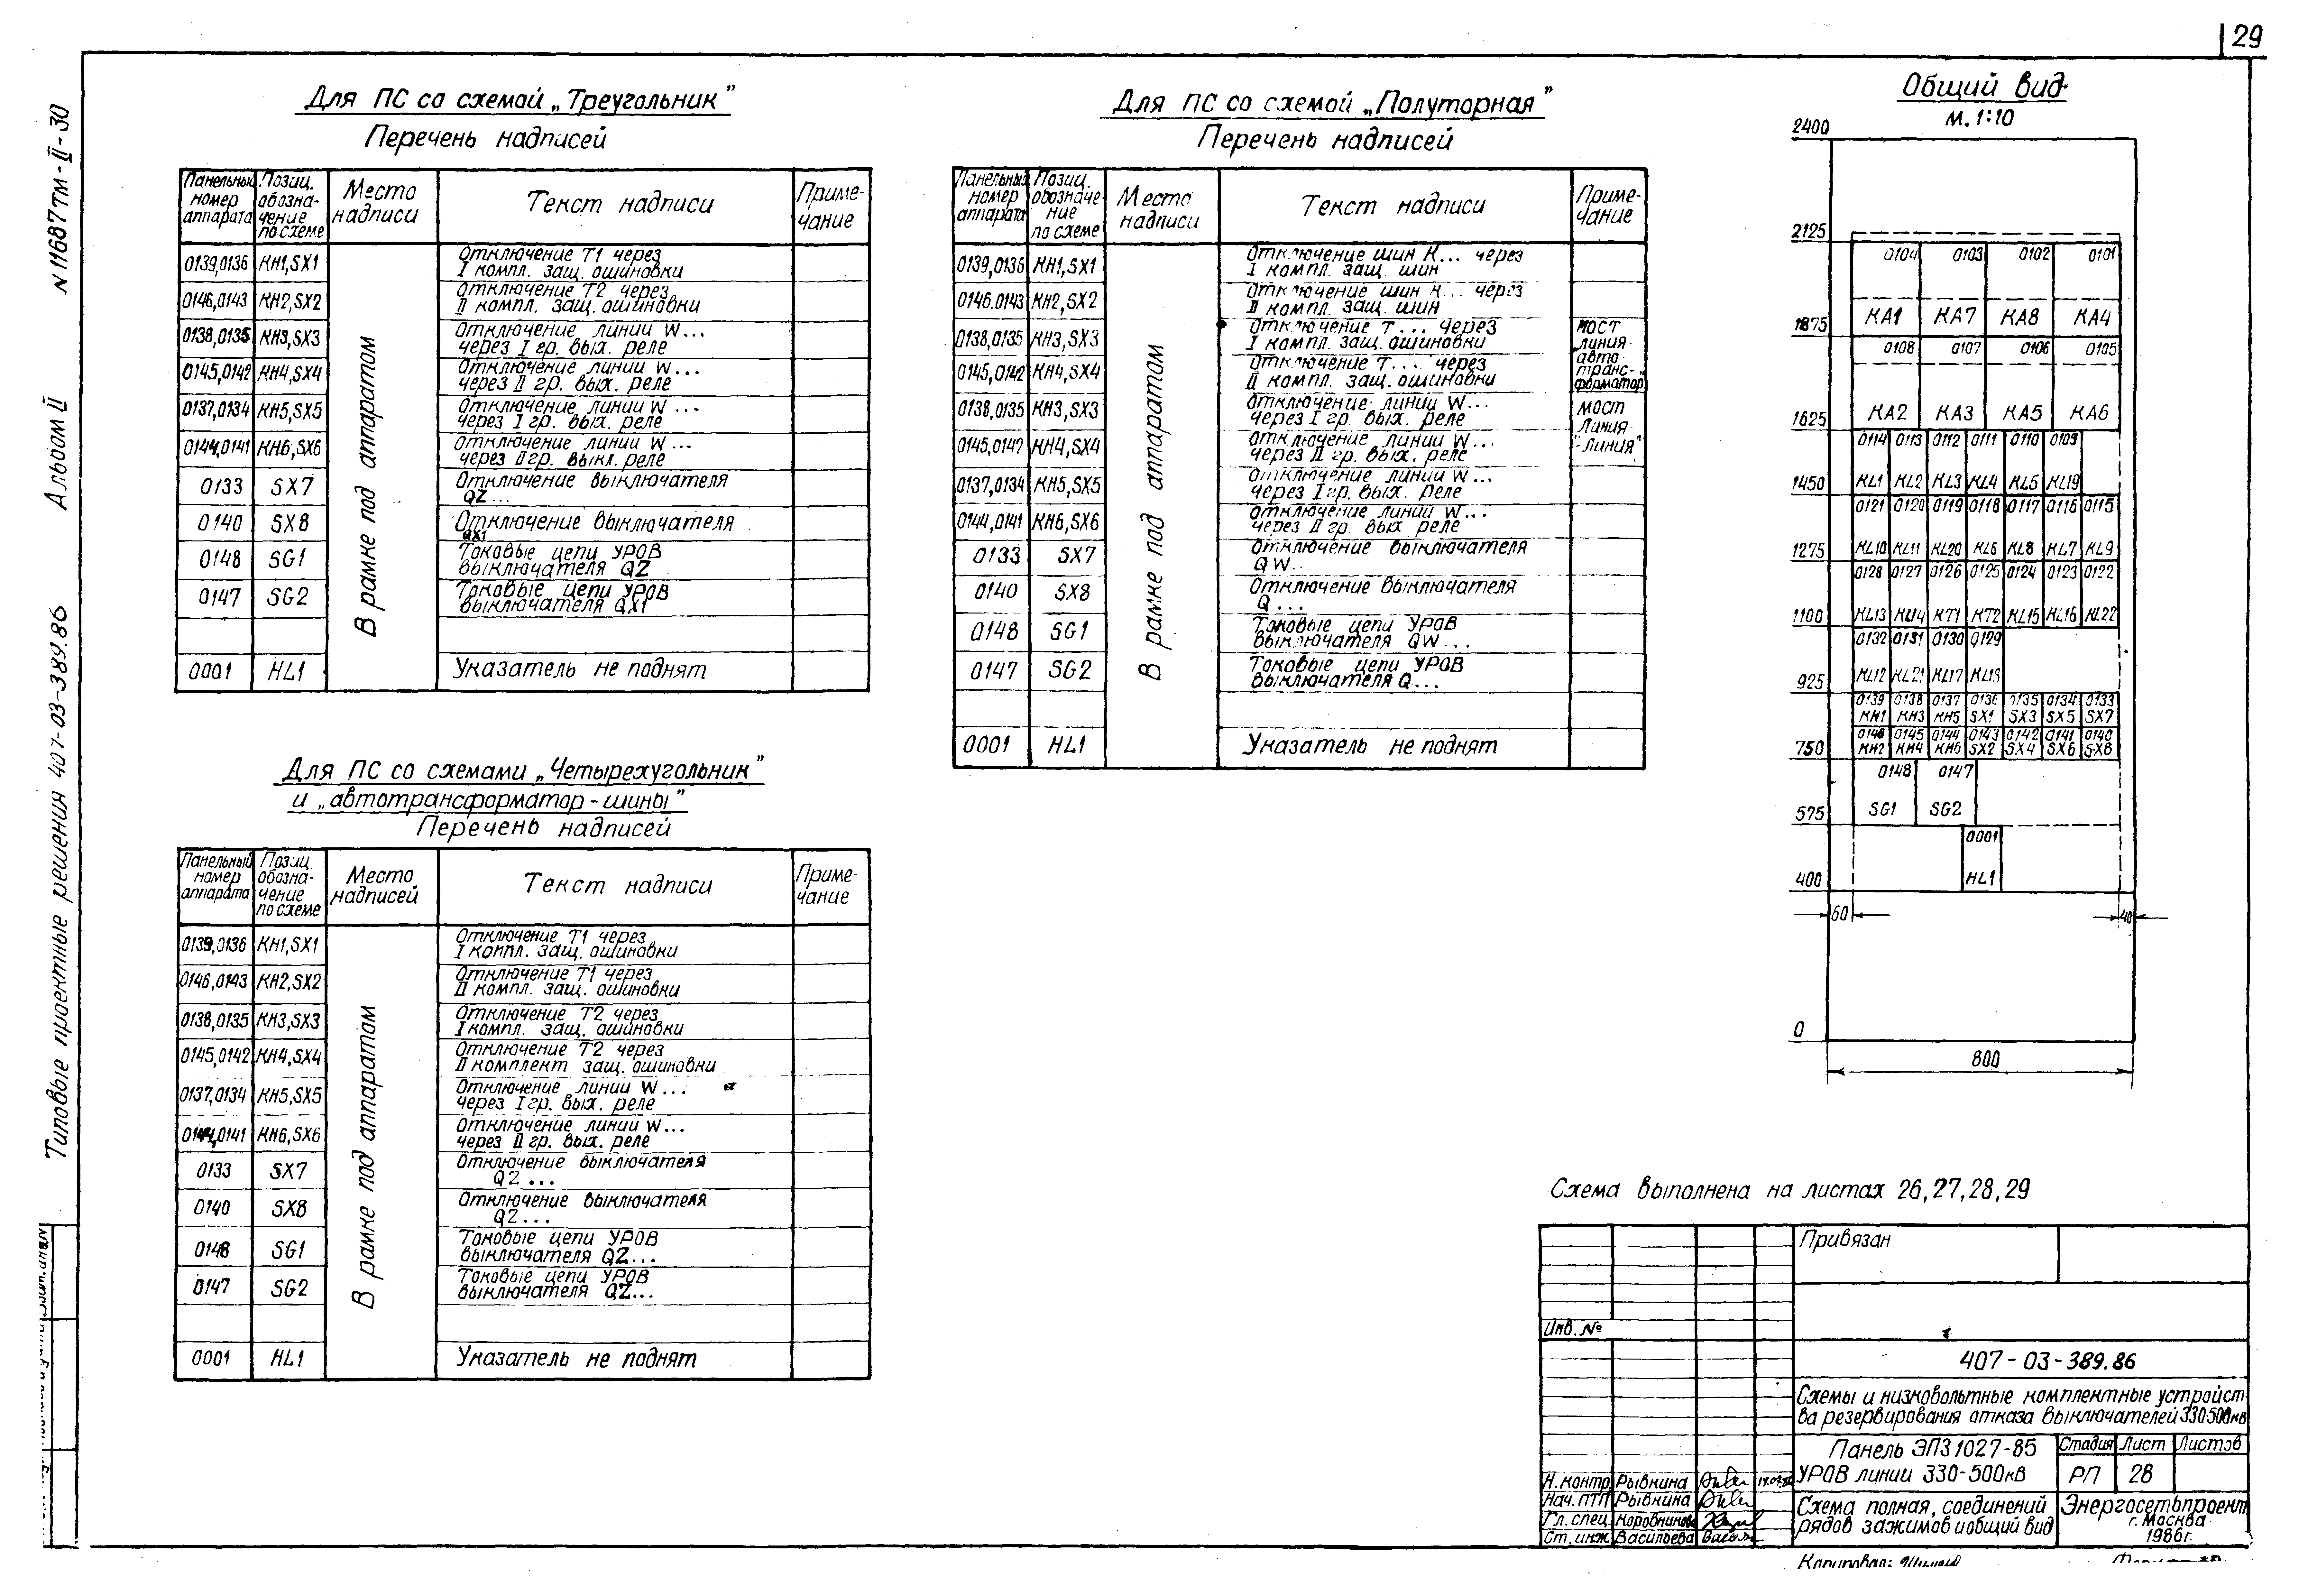 29
N 11687тм-II-30
Альбом II
Типовые проектные решения 407-03-389.86
Для ПС со схемой „Треугольник”
Перечень надписей
Панельный номер аппарата
Позиц. обозначение по схеме
Место надписи
Текст надписи
Примечание
0139,0136 КН1,SX1 Отключение Т1 через
I компл. защ. ошиновки
0146,0143 КН2,SX2 Отключение Т2 через
II компл. защ. ошиновки
0138,0135 КН3,SX3 Отключение линии W...
через I гр. вых. реле
0145,0142 КН4,SX4 Отключение линии W...
через II гр. вых. реле
0137,0134 КН5,SX5 Отключение линии W...
через I гр. вых. реле
0144,0141 КН6,SX6 Отключение линии W...
через II гр. выкл. реле
0133 SX7 Отключение выключателя
QZ...
0140 SX8 Отключение выключателя
QX1
0148 SG1 Токовые цепи УРОВ
выключателя QZ
0147 SG2 Токовые цепи УРОВ
выключателя QX1
0001 HL1 Указатель не поднят
В рамке под аппаратом
Для ПС со схемами „Четырехугольник”
и „автотрансформатор-шины”
Перечень надписей
Панельный номер аппарата
Позиц. обозначение по схеме
Место надписей
Текст надписи
Примечание
0139,0136 КН1,SX1 Отключение Т1 через
I компл. защ. ошиновки
0146,0143 КН2,SX2 Отключение Т1 через
II компл. защ. ошиновки
0138,0135 КН3,SX3 Отключение Т2 через
I компл. защ. ошиновки
0145,0142 КН4,SX4 Отключение Т2 через
II комплект защ. ошиновки
0137,0134 КН5,SX5 Отключение линии W...
через I гр. вых. реле
0144,0141 КН6,SX6 Отключение линии W...
через II гр. вых. реле
0133 SX7 Отключение выключателя
QZ...
0140 SX8 Отключение выключателя
QZ...
0148 SG1 Токовые цепи УРОВ
выключателя QZ...
0147 SG2 Токовые цепи УРОВ
выключателя QZ...
0001 HL1 Указатель не поднят
В рамке под аппаратом
Для ПС со схемой „Полуторная”
Перечень надписей
Панельный номер аппарата
Позиц. обозначение по схеме
Место надписи
Текст надписи
Примечание
0139,0136 КН1,SX1 Отключение шин К... через
I компл. защ. шин
0146.0143 КН2,SX2 Отключение шин К... через
II компл. защ. шин
0138,0135 КН3,SX3 Отключение Т... через
I компл. защ. ошиновки
0145,0142 КН4,SX4 Отключение Т... через
II компл. защ. ошиновки
мост
линия-
авто-
транс-
форматор
0138,0135 КН3,SX3 Отключение линии W...
через I гр. вых. реле
0145,0142 КН4,SX4 Отключение линии W...
через II гр. вых. реле
мост
линия
"-линия"
0137,0134 КН5,SX5 Отключение линии W...
через I гр. вых. реле
0144,0141 КН6,SX6 Отключение линии W...
через II гр. вых реле
0133 SX7 Отключение выключателя
QW...
0140 SX8 Отключение выключателя
Q...
0148 SG1 Токовые цепи УРОВ
выключателя QW...
0147 SG2 Токовые цепи УРОВ
выключателя Q...
0001 HL1 Указатель не поднят
В рамке под аппаратом
Общий вид
М. 1:10
2400
2125
0104 0103 0102 0101
КА1 КА7 КА8 КА4
1875
0108 0107 0106 0105
КА2 КА3 КА5 КА6
1625
0114 0113 0112 0111 0110 0109
KL1 KL2 KL3 KL4 KL5 KL19
1450
0121 0120 0119 0118 0117 0116 0115
KL10 KL11 KL20 KL6 KL8 KL7 KL9
1275
0128 0127 0126 0125 0124 0123 0122
KL13 KL14 КТ1 КТ2 KL15 KL16 KL22
1100
0132 0131 0130 0129
KL12 KL21 KL17 KL18
925
0139 0138 0137 0136 0135 0134 0133
КН1 КН3 КН5 SX1 SX3 SX5 SX7
0146 0145 0144 0143 0142 0141 0140
КН2 КН4 КН6 SX2 SX4 SX6 SX8
750
0148 0147
SG1 SG2
575
0001
HL1
400
60
40
0
800
Схема выполнена на листах 26,27,28,29
Привязан
Инв. №
407-03-389.86
Схемы и низковольтные комплектные устройст-
ва резервирования отказа выключателей 330-500кв
Панель ЭПЗ1027-85
УРОВ линии 330-500кв
Стадия Лист Листов
РП 28
Схема полная, соединений
рядов зажимов и общий вид
Энергосетьпроект
г. Москва
1986г.
Н. контр. Рывкина
Нач. ПТП Рывкина
Гл. спец. Коровникова
Ст. инж. Васильева
Копировал: